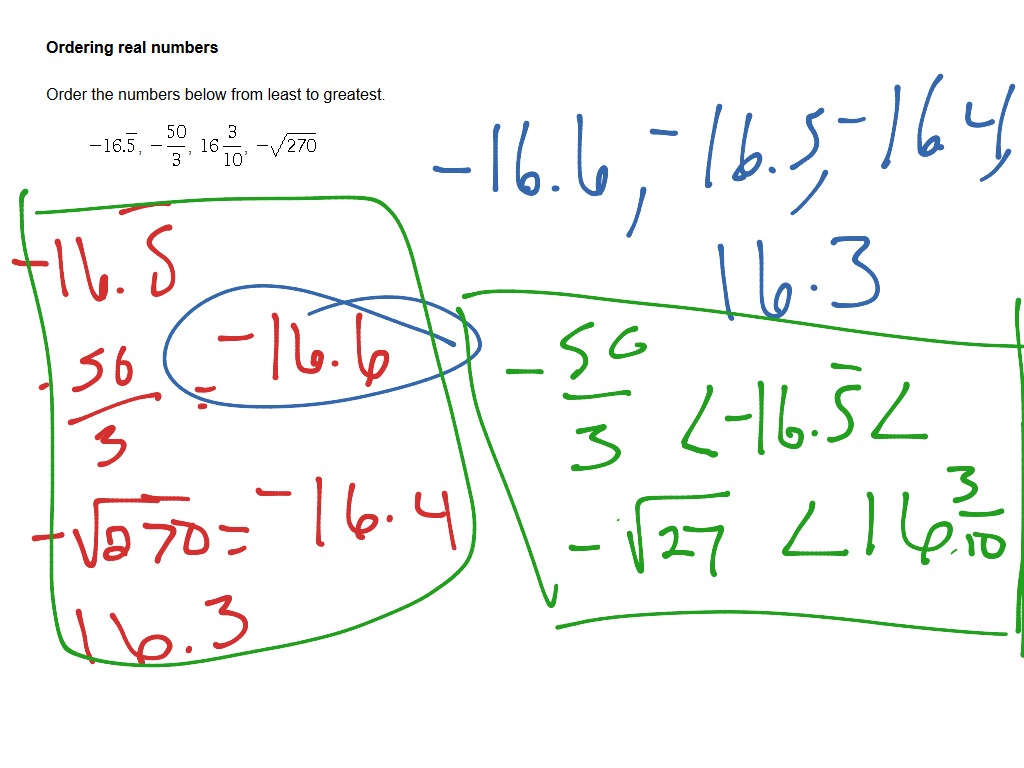 Ordering real numbers
Order the numbers below from least to greatest.
−16.5̅, −50/3, 16 3/10, −√270
−16.6, −16.5, −16.4,
16.3
−16.5̅
-50/3 = −16.6
−√270 = −16.4
16.3
−50/3 < −16.5̅ <
−√27 < 16 3/10